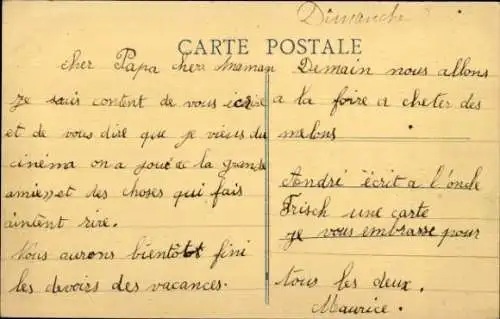 Dimanche
CARTE POSTALE
cher Papa chere maman
je suis content de vous écrire
et de vous dire que je viens du
cinéma on a joué la grande
amienet des choses qui fais
aintent rire.
Nous aurons bientôt fini
les devoirs des vacances.
Demain nous allons
a la foire a cheter des
melons
André ècrit a l'oncle
Frisch une carte
je vous embrasse pour
tous les deux.
Maurice.